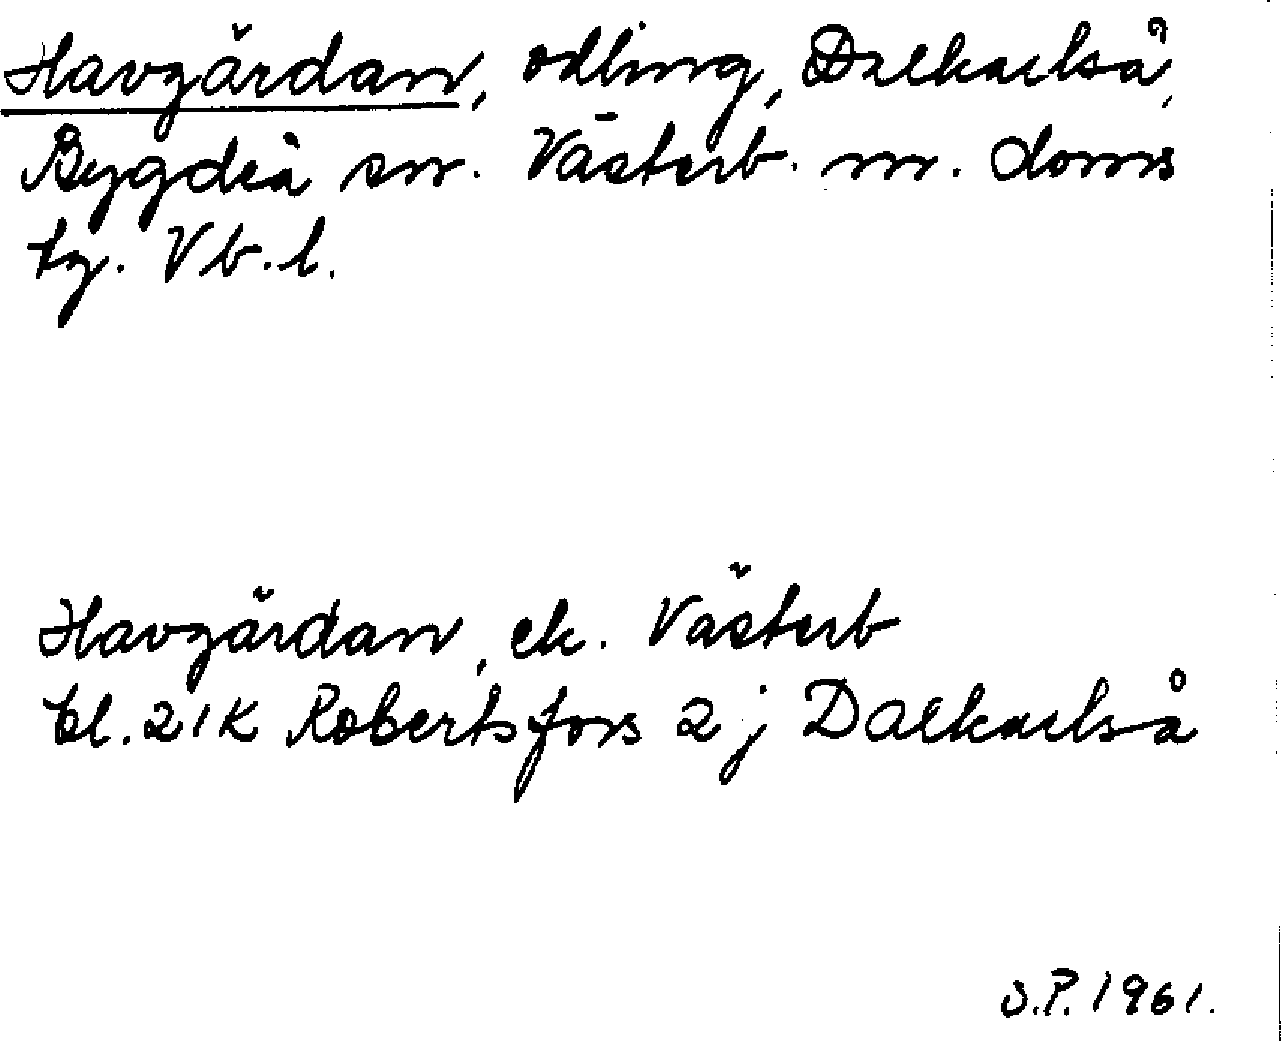 Havgärdan, odling, Dalkarlså,
Bygdeå sn. Västerb. m. doms
tg. Vb.l.
Havgärdan, ek. Västerb
bl. 21K Robertsfors 2 j Dalkarlså
S.P. 1961.